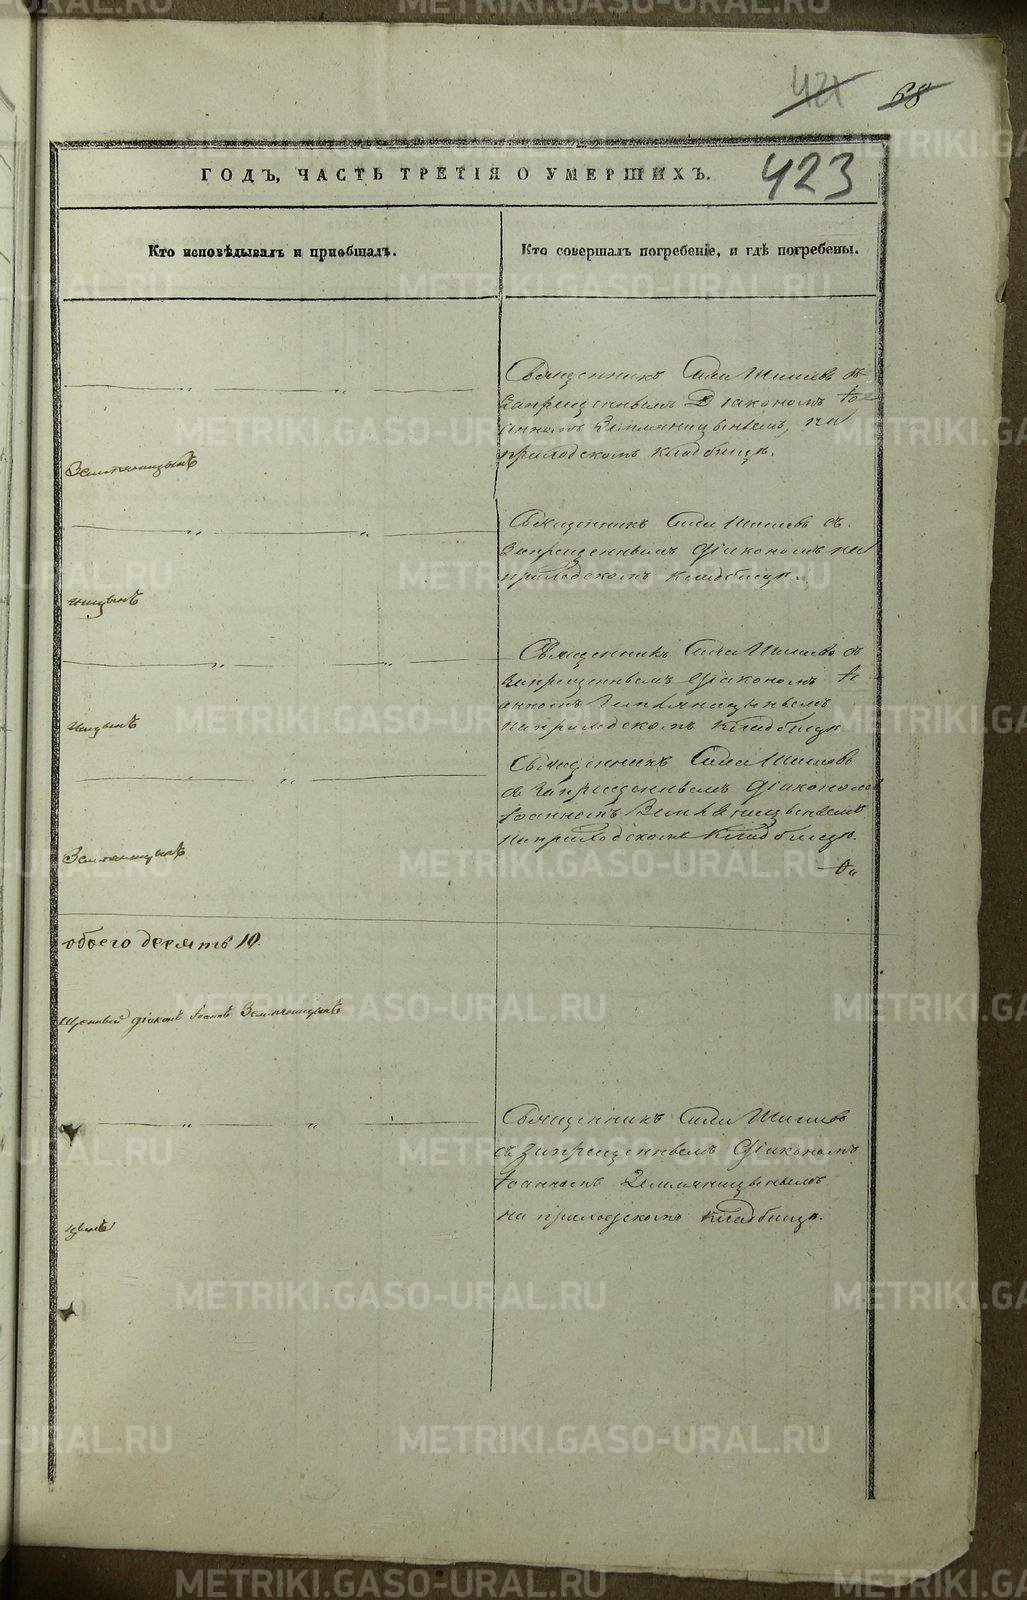 421
68
ГОДЪ, ЧАСТЬ ТРЕТІЯ О УМЕРШИХЪ.
423
Кто исповѣдывалъ и пріобщалъ.
Кто совершалъ погребеніе, и гдѣ погребены.
Священникъ Сила Шишевъ съ
запрещеннымъ Діакономъ Іо
анномъ Земляницынымъ, на
приходскомъ кладбищѣ.
Земляницынъ
Священникъ Сила Шишевъ съ
запрещеннымъ Діакономъ на
приходскомъ кладбищѣ.
ницынъ
Священникъ Сила Шишевъ съ
запрещеннымъ Діакономъ Іо
анномъ Земляницынымъ
на приходскомъ кладбищѣ
ницынъ
Священникъ Сила Шишевъ
съ запрещеннымъ Діакономъ
Іоанномъ Земляницынымъ
на приходскомъ кладбищѣ.
Земляницынъ
обоего десять 10.
щенный діаконъ Іоаннъ Земляницынъ
Священникъ Сила Шишевъ
съ запрещеннымъ Діакономъ
Іоанномъ Земляницынымъ
на приходскомъ кладбищѣ.
цынъ
METRIKI.GASO-URAL.RU